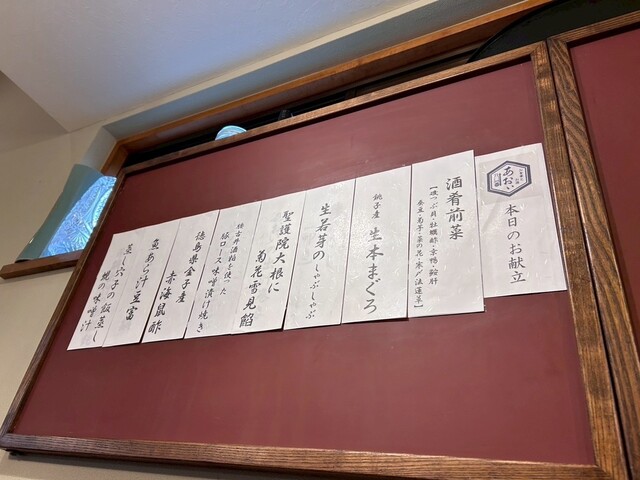 あおい
本日のお献立
酒肴前菜
生本まぐろ
生若芽のしゃぶしゃぶ
聖護院大根に
菊花雪見餡
豚ロース味噌漬け焼き
徳島県金子産
赤海鼠酢
魚あら汁豆富
蒸し穴子の飯蒸し
蜆の味噌汁